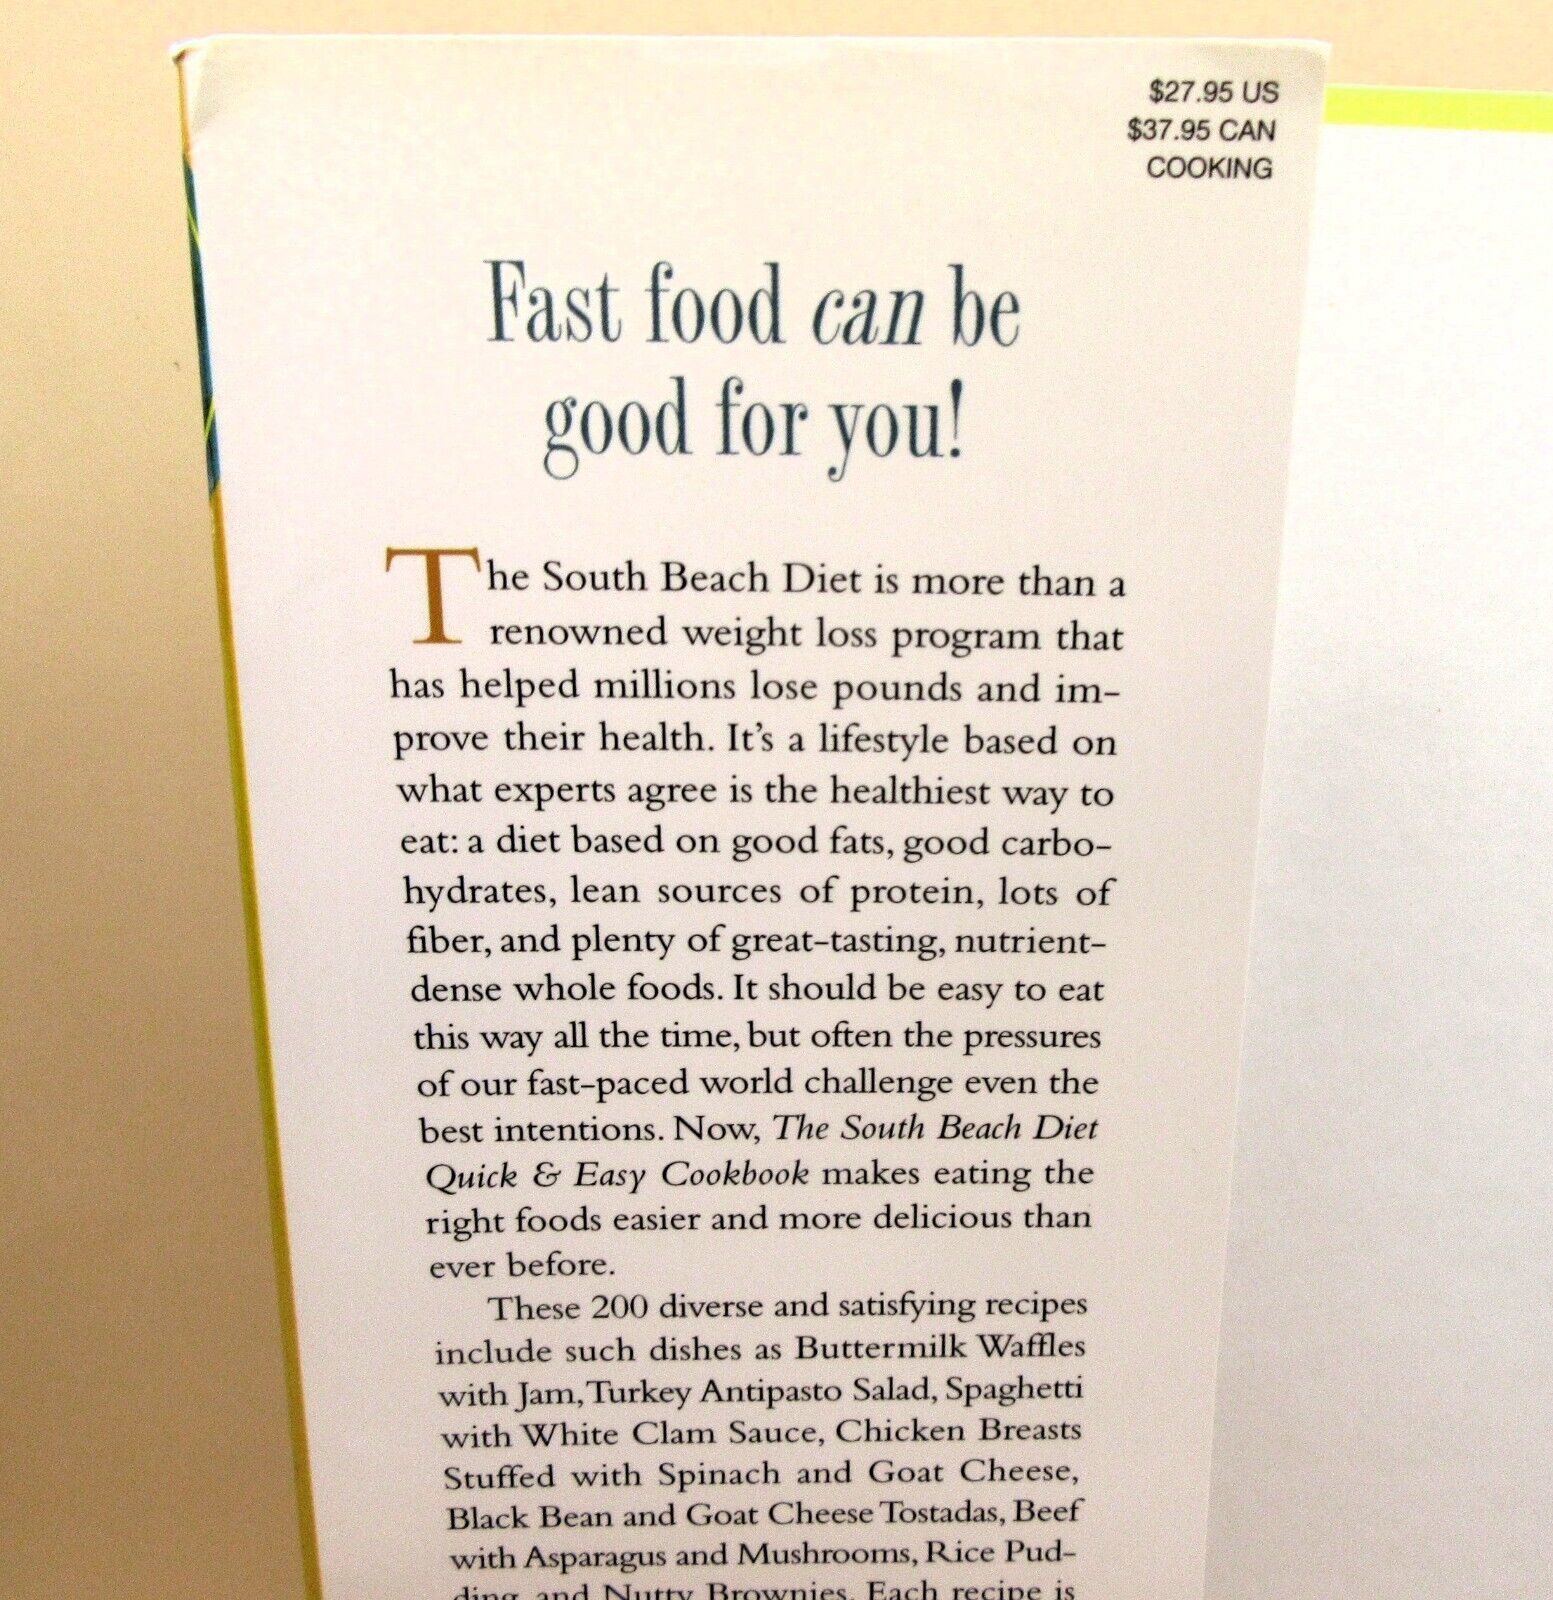 $27.95 US
$37.95 CAN
COOKING
Fast food can be
good for you!
The South Beach Diet is more than a
renowned weight loss program that
has helped millions lose pounds and im-
prove their health. It's a lifestyle based on
what experts agree is the healthiest way to
eat: a diet based on good fats, good carbo-
hydrates, lean sources of protein, lots of
fiber, and plenty of great-tasting, nutrient-
dense whole foods. It should be easy to eat
this way all the time, but often the pressures
of our fast-paced world challenge even the
best intentions. Now, The South Beach Diet
Quick & Easy Cookbook makes eating the
right foods easier and more delicious than
ever before.
These 200 diverse and satisfying recipes
include such dishes as Buttermilk Waffles
with Jam, Turkey Antipasto Salad, Spaghetti
with White Clam Sauce, Chicken Breasts
Stuffed with Spinach and Goat Cheese,
Black Bean and Goat Cheese Tostadas, Beef
with Asparagus and Mushrooms, Rice Pud-
ding and Nutty Brownies. Each recipe is